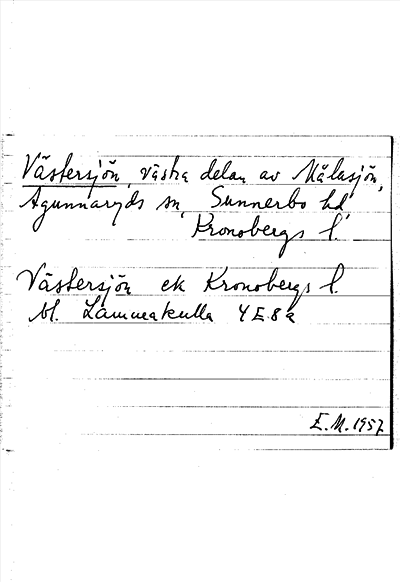 Västersjön, västra delen av Målasjön,
Agunnaryds sn, Sunnerbo hd,
Kronobergs l.
Västersjön ek Kronobergs l.
bl. Lammakulla 4E8a
E.M. 1957